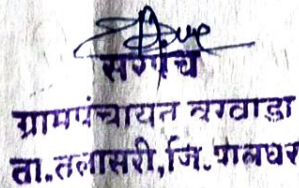 सरपंच
ग्रामपंचायत वरवाडा
ता.तलासरी,जि.पालघर